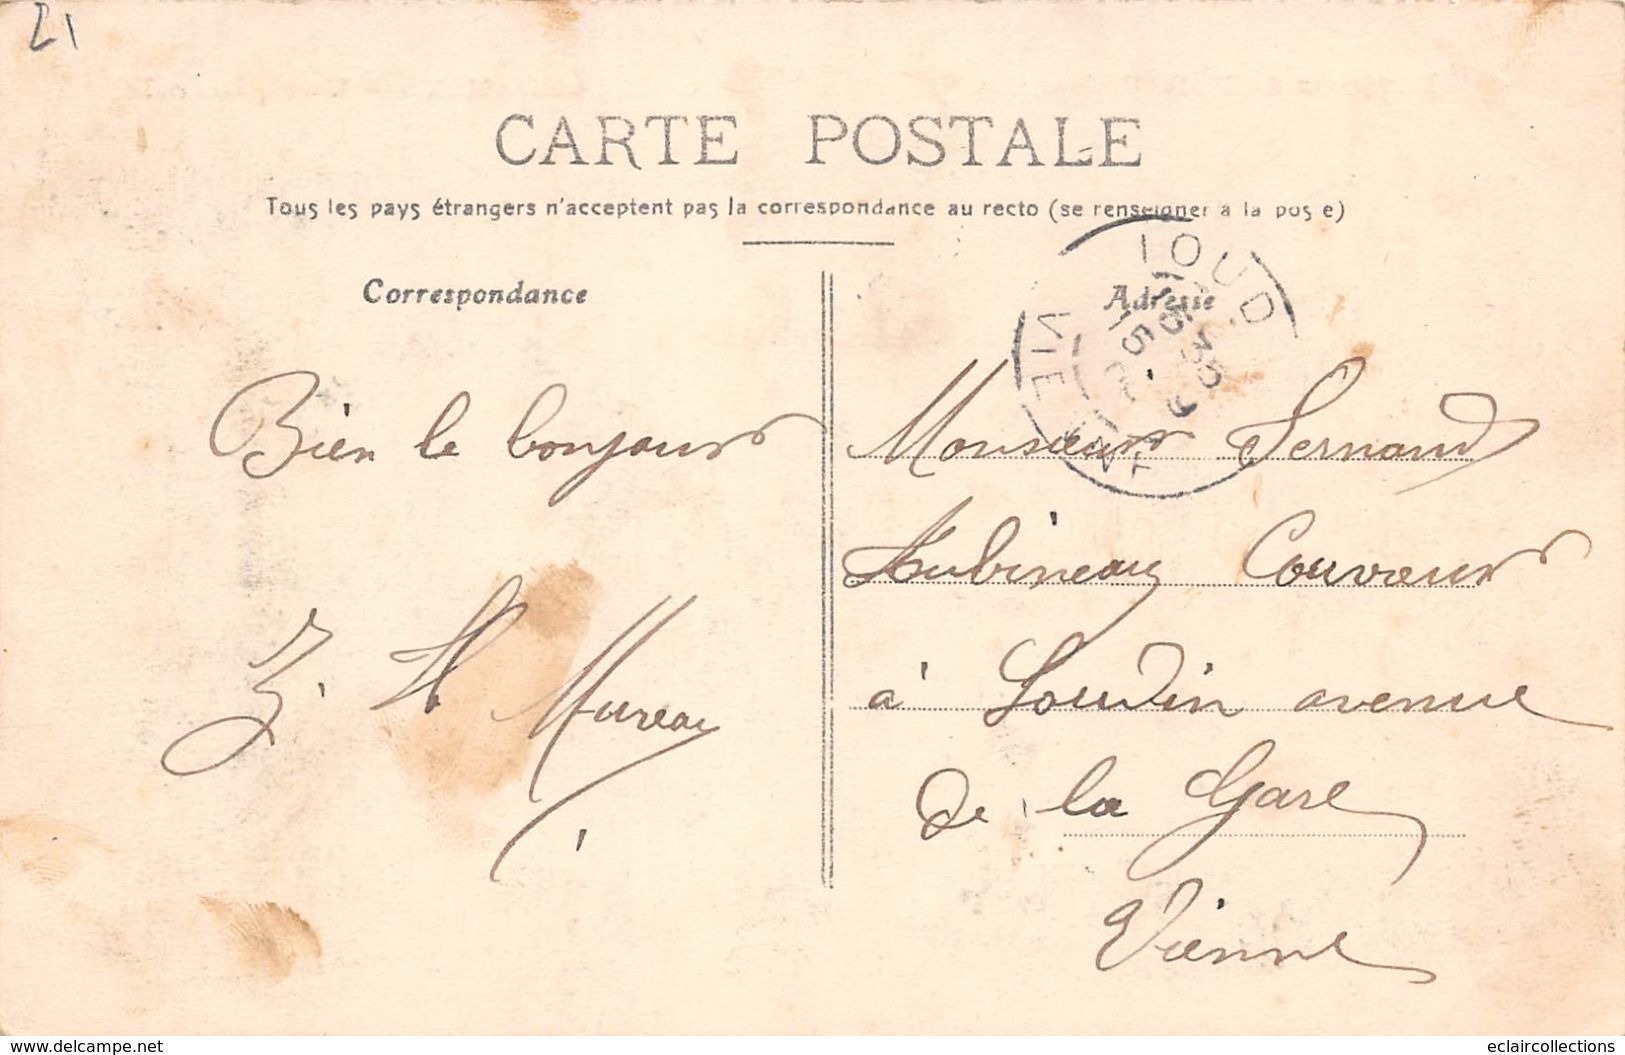 21
CARTE POSTALE
Tous les pays étrangers n'acceptent pas la correspondance au recto (se renseigner à la pos e)
Correspondance
Adresse
LOUD
VIENNE
15
Bien le bonjour
Mureau
Monsieur Fernand
Aubineau Couvreur
à Loudin avenue
de la Gare
Vienne
www.delcampe.net
eclaircollections